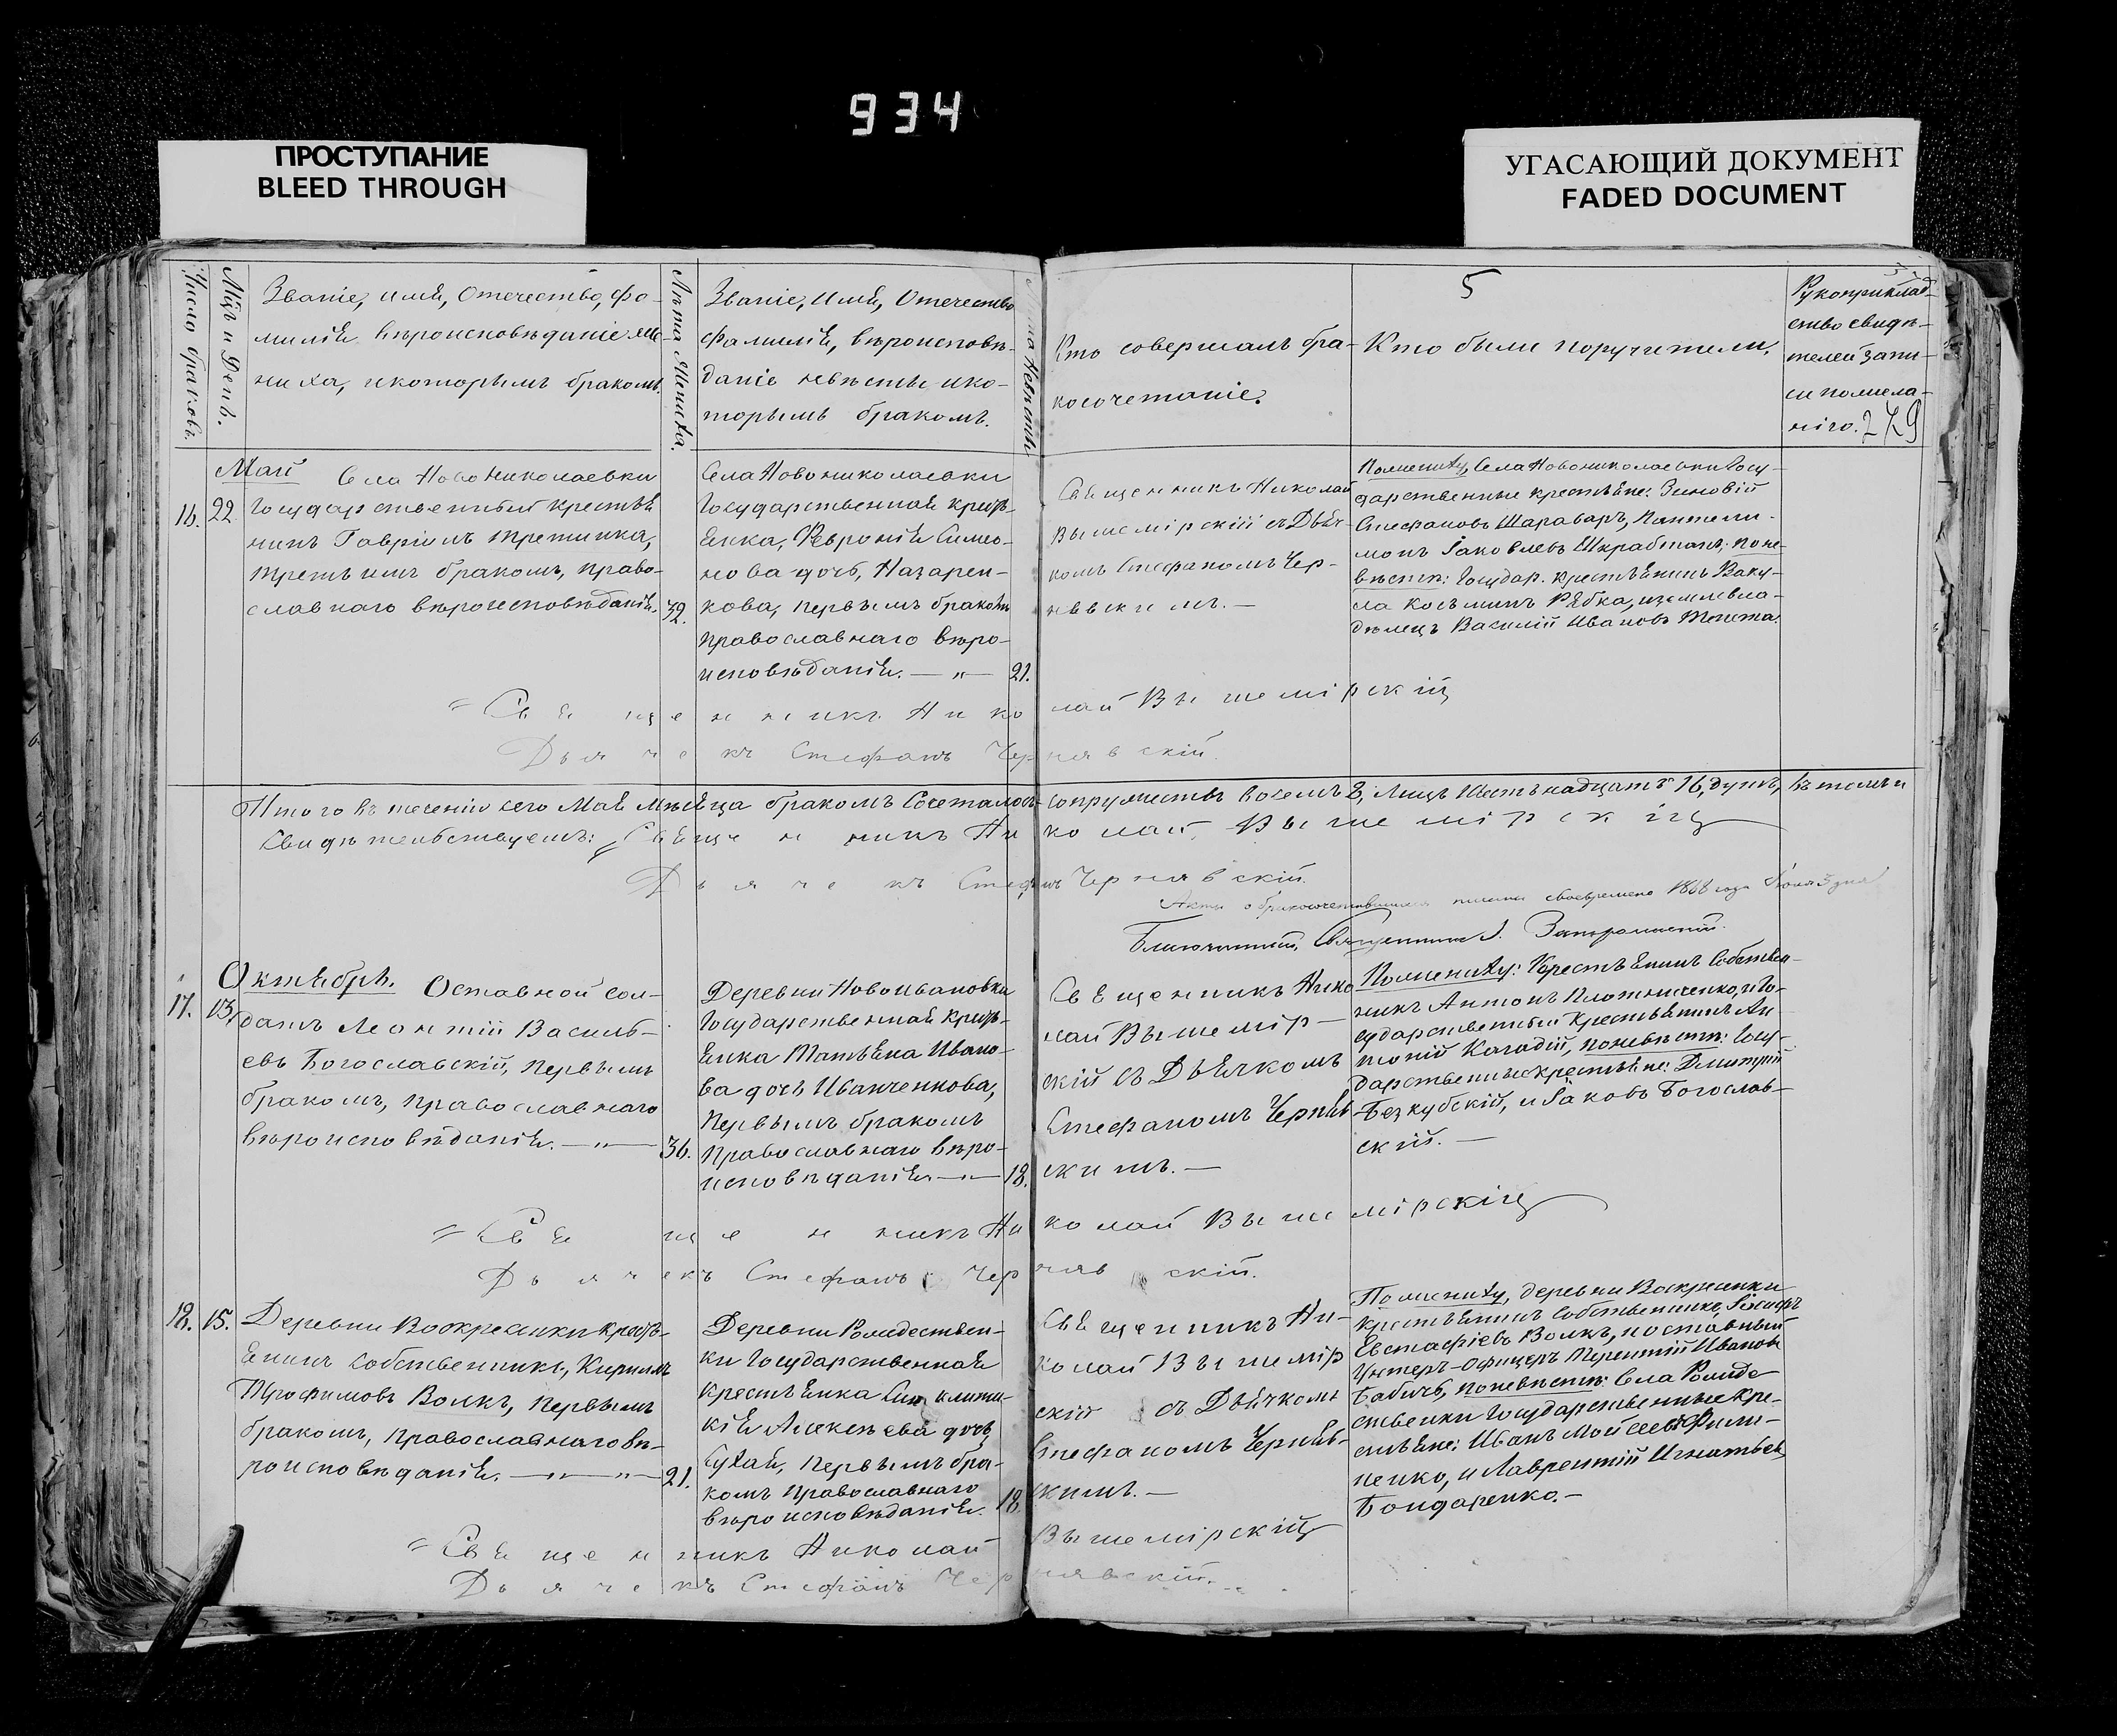 934
ПРОСТУПАНИЕ
BLEED THROUGH
УГАСАЮЩИЙ ДОКУМЕНТ
FADED DOCUMENT
Число браковъ.
Мѣц. и День.
Званіе, имя, Отечество, фа-
милія вѣроисповѣданіе же-
ниха, и которымъ бракомъ.
Лѣта Жениха.
Званіе, имя, Отечество
фамилія, вѣроисповѣ-
даніе невѣсты и ко-
торымъ бракомъ.
Лѣта Невѣсты
Кто совершалъ бра-
косочетаніе.
5
Кто были поручители.
Рукоприклад-
ство свидѣ-
телей запи-
си по жела-
нію. 279
Май
16. 22
Села Новониколаевки
Государственный крестья
нинъ Гавріилъ Третинка,
третьимъ бракомъ, право-
славнаго вѣроисповѣданія.
39.
Села Новониколаевки
Государственная крест-
янка, Февронія Симео-
нова дочь, Назарен-
кова, первымъ бракомъ
православнаго вѣро-
исповѣданія. — „ — 21.
Священникъ Николай
Вышемірскій съ Дьяч-
комъ Стефаномъ Чер-
нявскимъ. —
По жениху, Села Новониколаевки Госу-
дарственные крестьяне: Зиновій
Стефановъ Шараваръ, Пантели-
монъ Іаковлевъ Шкрабтанъ; по не-
вѣстѣ: Государ. крестьянинъ Ваку-
ла Косьминъ Рябка, и землевла-
дѣлецъ Василій Ивановъ Тенета.
Священникъ Николай Вышемірскій
Дьячекъ Стефанъ Чернявскій.
Итого въ теченіи сего Мая мѣсяца бракомъ Сочеталось супружествъ восемь 8, лицъ Шестьнадцать 16, душъ, въ томъ и
Свидѣтельствуемъ: Священникъ Николай Вышемірскій
Дьячекъ Стефанъ Чернявскій.
Акты о бракосочетавшихся писаны своевремено 1868 года Іюня 3 дня
Благочинный, Священникъ Запорожскій.
Октябрь.
17. 13.
Оставной сол-
датъ Леонтій Василь-
евъ Богославскій, первымъ
бракомъ, православнаго
вѣроисповѣданія. — „ — 36.
Деревни Новоивановки
Государственная крест-
янка Татьяна Ивано-
ва дочь Иванченкова,
первымъ бракомъ
православнаго вѣро-
исповѣданія. — „ — 18.
Священникъ Нико
лай Вышемір-
скій съ Дьячкомъ
Стефаномъ Черняв
скимъ. —
По жениху: Крестьянинъ Собствен-
никъ Антонъ Плотниченко, и Го-
сударственный Крестьянинъ Ан
тоній Кагадій, по невѣстѣ: Госу-
дарственные крестьяне: Дмитрій
Безкубскій, и Іаковъ Богослав-
скій. —
Священникъ Николай Вышемірскій
Дьячекъ Стефанъ Чернявскій.
18. 15.
Деревни Воскресенки крест-
янинъ собственникъ, Кирилъ
Трофимовъ Волкъ, первымъ
бракомъ, православнаго вѣ-
роисповѣданія. — „ — „ — 21.
Деревни Рождествен-
ки Государственная
крестьянка Синклити-
кія Алексѣева дочь
Сухая, первымъ бра-
комъ православнаго
вѣроисповѣданія. 18.
Священникъ Ни-
колай Вышемір
скій съ Дьячкомъ
Стефаномъ Черняв-
скимъ. —
По жениху, деревни Воскресенки
крестьянинъ собственникъ, Іосифъ
Евстафіевъ Волкъ, и оставный
Унтеръ-Офицеръ Терентій Ивановъ
Бабичъ, по невѣстѣ: Села Рожде
ственки Государственные кре-
стьяне: Иванъ Мойсеевъ Фили-
пенко, и Лаврентій Игнатьевъ
Бондаренко. —
Священникъ Николай Вышемірскій
Дьячекъ Стефанъ Чернявскій.